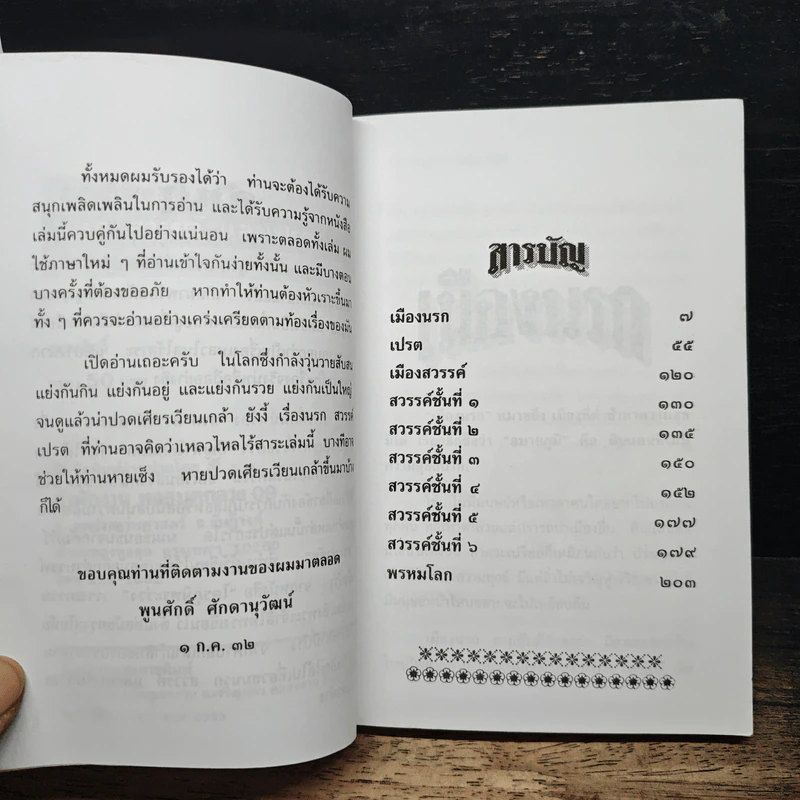 ทั้งหมดผมรับรองได้ว่า ท่านจะต้องได้รับความ
สนุกเพลิดเพลินในการอ่าน และได้รับความรู้จากหนังสือ
เล่มนี้ควบคู่กันไปอย่างแน่นอน เพราะตลอดทั้งเล่ม ผม
ใช้ภาษาใหม่ ๆ ที่อ่านเข้าใจกันง่ายทั้งนั้น และมีบางตอน
บางครั้งที่ต้องขออภัย หากทำให้ท่านต้องหัวเราะขึ้นมา
ทั้ง ๆ ที่ควรจะอ่านอย่างเคร่งเครียดตามท้องเรื่องของมัน
เปิดอ่านเถอะครับ ในโลกซึ่งกำลังวุ่นวายสับสน
แย่งกันกิน แย่งกันอยู่ และแย่งกันรวย แย่งกันเป็นใหญ่
จนดูแล้วน่าปวดเศียรเวียนเกล้า ยังงี้ เรื่องนรก สวรรค์
เปรต ที่ท่านอาจคิดว่าเหลวไหลไร้สาระเล่มนี้ บางทีอาจ
ช่วยให้ท่านหายเซ็ง หายปวดเศียรเวียนเกล้าขึ้นมาบ้าง
ก็ได้
ขอบคุณท่านที่ติดตามงานของผมมาตลอด
พูนศักดิ์ ศักดานุวัฒน์
๑ ก.ค. ๓๒
สารบัญ
เมืองนรก ๗
เปรต ๕๕
เมืองสวรรค์ ๑๒๐
สวรรค์ชั้นที่ ๑ ๑๓๐
สวรรค์ชั้นที่ ๒ ๑๓๕
สวรรค์ชั้นที่ ๓ ๑๕๐
สวรรค์ชั้นที่ ๔ ๑๕๒
สวรรค์ชั้นที่ ๕ ๑๗๗
สวรรค์ชั้นที่ ๖ ๑๗๙
พรหมโลก ๒๐๓